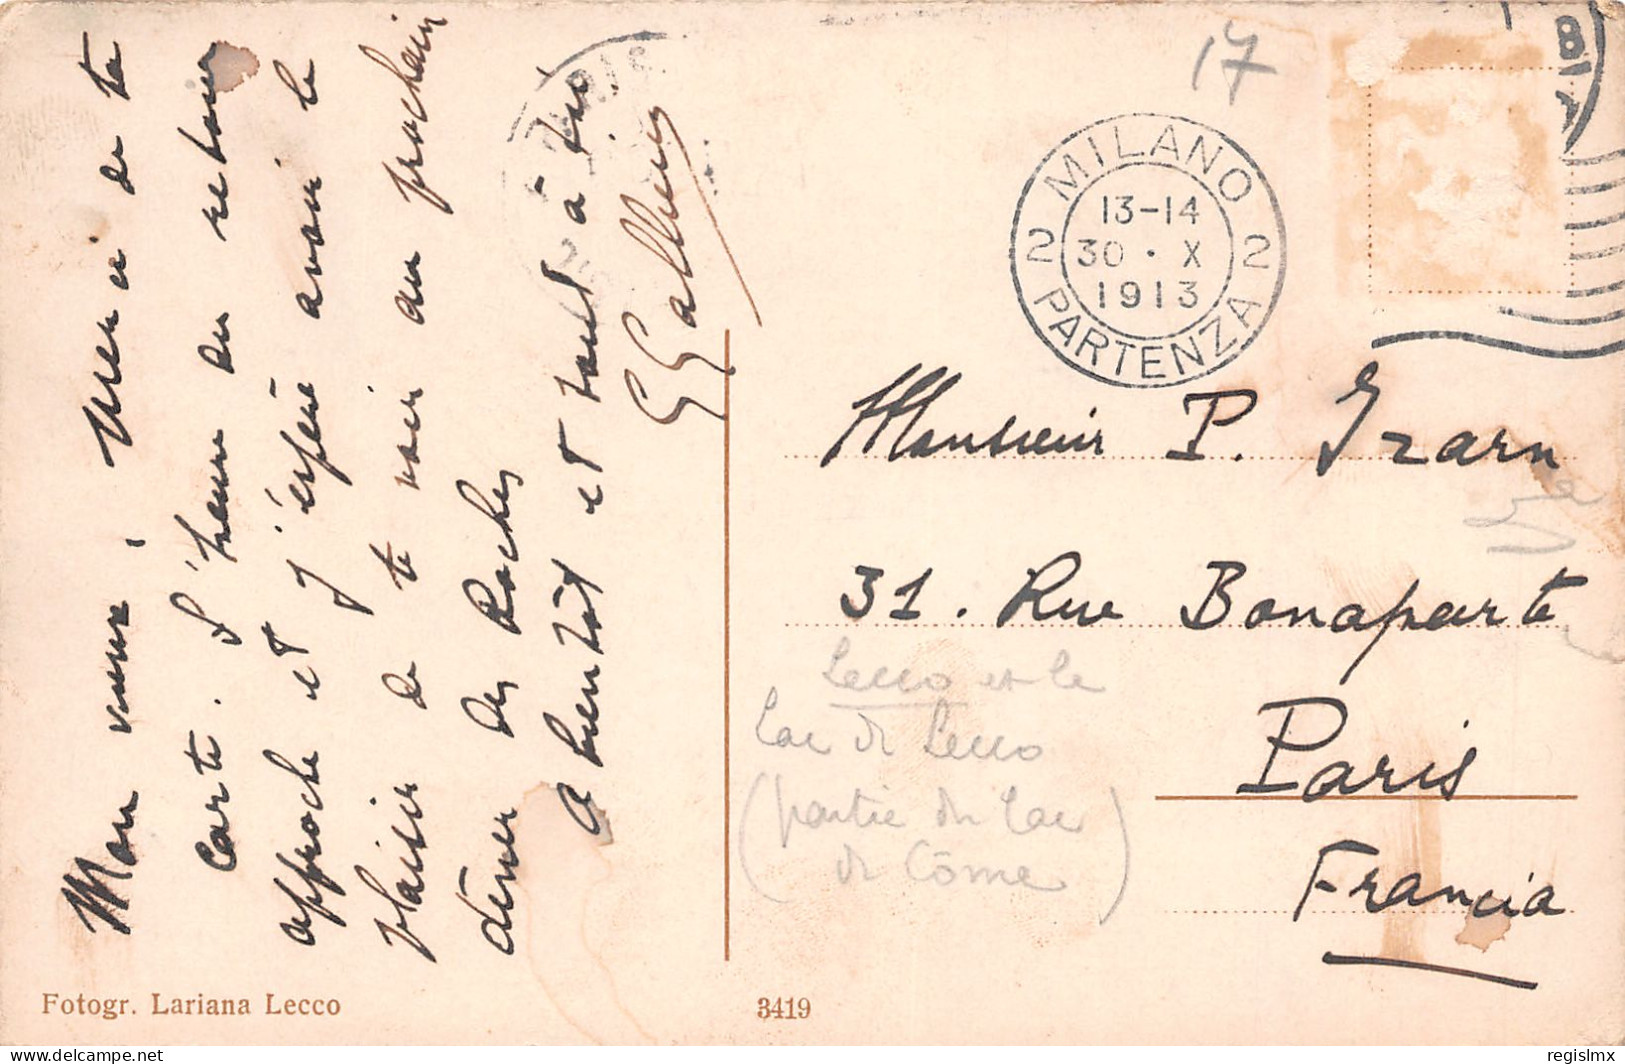 Mon vieux, Merci de ta
carte. L'heure du retour
approche et j'espère avoir le
plaisir de te voir au prochain
dîner des Roches
A bientôt et tout à toi
17
MILANO
13-14
2 30 · X 2
1913
PARTENZA
Monsieur P. Izarn
31. Rue Bonaparte
Paris
Francia
Lecco et le
Lac de Lecco
(partie du Lac
de Côme)
Fotogr. Lariana Lecco
3419
delcampe.net
regislmx